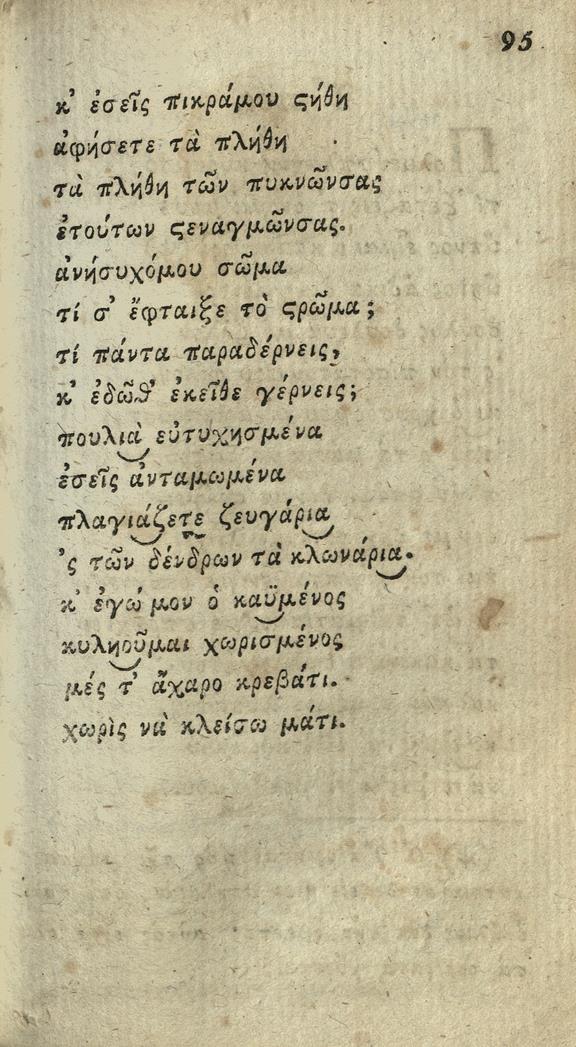 95
κ' ἐσεῖς πικράμου ϛήθη
ἀφήσετε τὰ πλήθη
τὰ πλήθη τῶν πυκνῶνσας
ἐτούτων ϛεναγμῶνσας.
ἀνήσυχόμου σῶμα
τί σ' ἔφταιξε τὸ ϛρῶμα;
τί πάντα παραδέρνεις,
κ' ἐδῶθ' ἐκεῖθε γέρνεις;
πουλιὰ εὐτυχησμένα
ἐσεῖς ἀνταμωμένα
πλαγιάζετε ζευγάρια
'ϛ τῶν δένδρων τὰ κλωνάρια.
κ' ἐγώ μον ὁ καϋμένος
κυληοῦμαι χωρισμένος
μές τ' ἄχαρο κρεβάτι.
χωρὶς νὰ κλείσω μάτι.